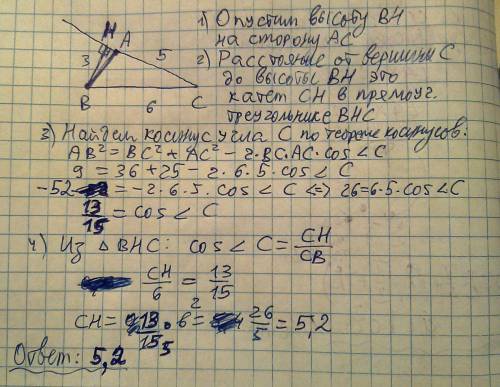 H
A
3
5
B
6
C
1) Опустим высоту BH
на сторону AC
2) Расстояние от вершины C
до высоты BH это
катет CH в прямоуг.
треугольнике BHC
3) Найдем косинус угла C по теореме косинусов:
AB² = BC² + AC² - 2·BC·AC·cos∠C
9 = 36 + 25 - 2·6·5·cos∠C
-52 = -2·6·5·cos∠C <=> 26=6·5·cos∠C
13/15 = cos∠C
4) Из △BHC: cos∠C = CH/CB
CH/6 = 13/15
CH = 13/15 5 · 6 2 = 26/5 = 5,2
Ответ: 5,2